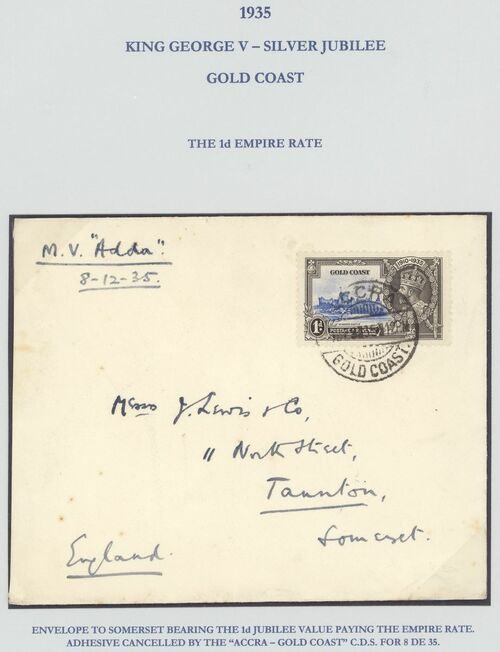 1935
KING GEORGE V – SILVER JUBILEE
GOLD COAST
THE 1d EMPIRE RATE
M.V. "Adda".
8-12-35.
GOLD COAST
1910-1935
1D
POSTAGE & REVENUE
ACCRA
GOLD COAST.
Messrs J. Lewis & Co,
11 North Street,
Taunton,
Somerset.
England.
ENVELOPE TO SOMERSET BEARING THE 1d JUBILEE VALUE PAYING THE EMPIRE RATE.
ADHESIVE CANCELLED BY THE "ACCRA – GOLD COAST" C.D.S. FOR 8 DE 35.